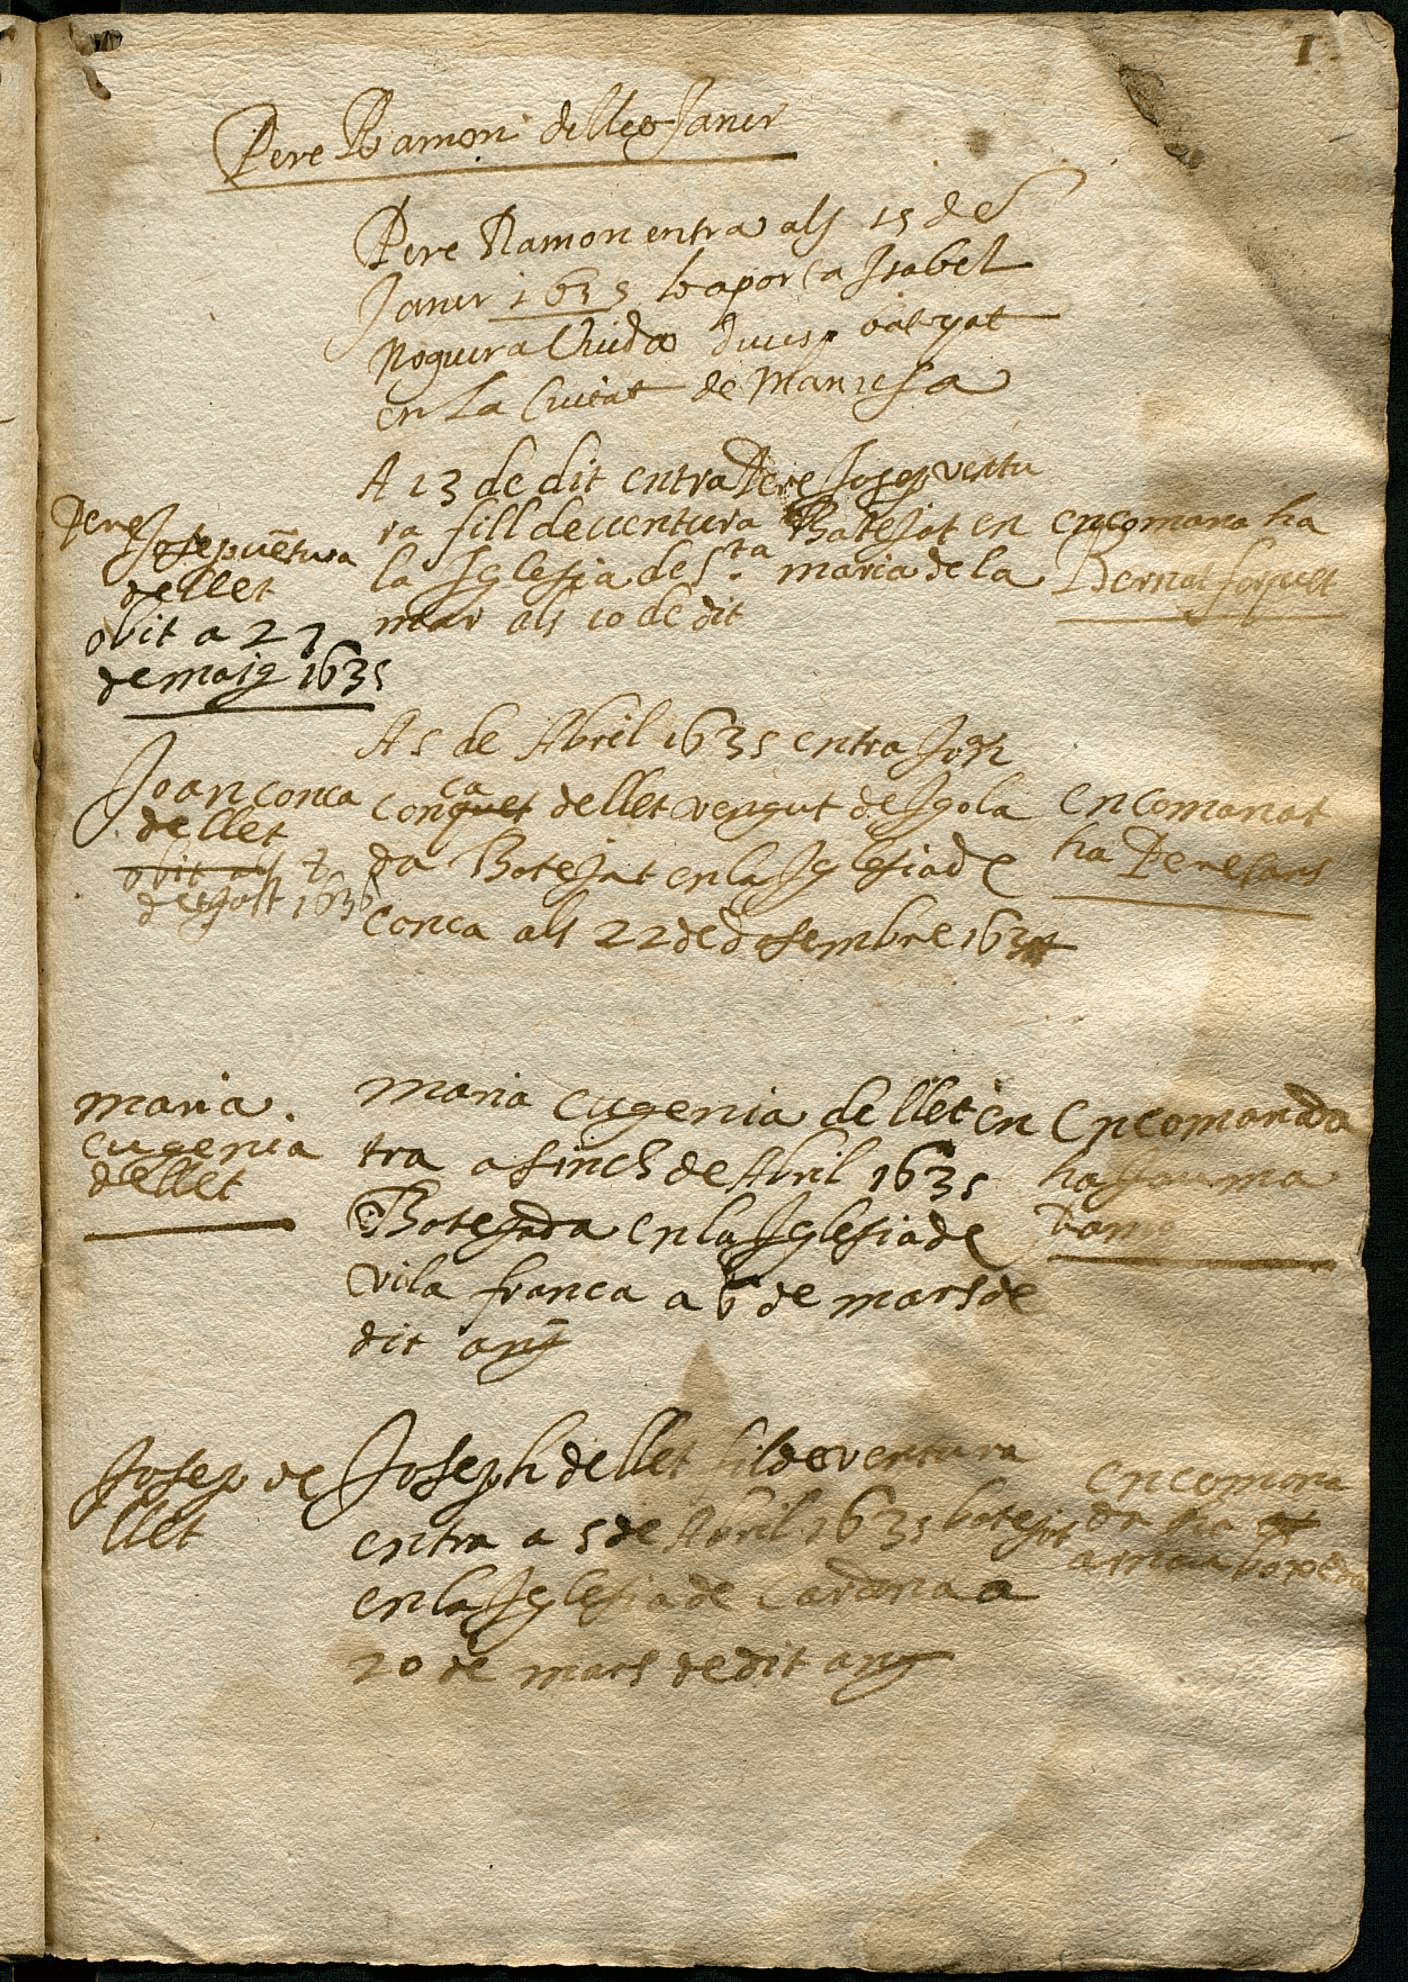 1
Pere Ramon de llet Janer
Pere Ramon entra als 15 de
Janer 1635 lo aporta Isabel
Noguera Viuda batejat
en la Ciutat de Manresa
Pere
Josep uētura
de llet
obit a 27
de maig 1635
A 13 de dit entra Pere Josep ventu
ra fill de uentura Batejat en
la Iglesia de S.ta maria de la
mar als 10 de dit
encomana ha
Bernat
Joan conca
de llet
obit als 7
de agost 1636
A 5 de Abril 1635 entra Joan
conquet ca de llet vengut de Igola
da Batejat en la Iglesia de
conca als 22 de desembre 163
encomanat
ha Pere
maria
eugenia
de llet
maria eugenia de llet en
tra a sinch de Abril 1635
Batejada en la Iglesia de
vila franca a 6 de mars de
dit any
encomanada
ha Jauma
Josep de
llet
Joseph de llet fil de ventura
entra a 5 de Abril 1635 batejat
en la Iglesia de Cardona a
20 de mars de dit any
encomana
da ha